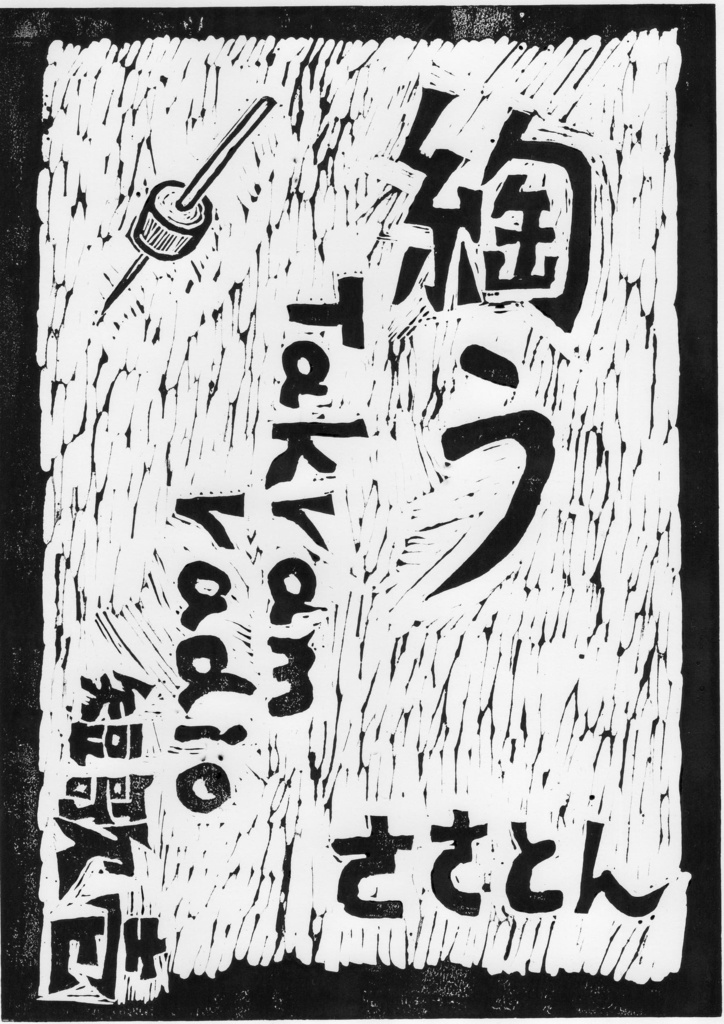 綯う
Takram
radio
ささとん